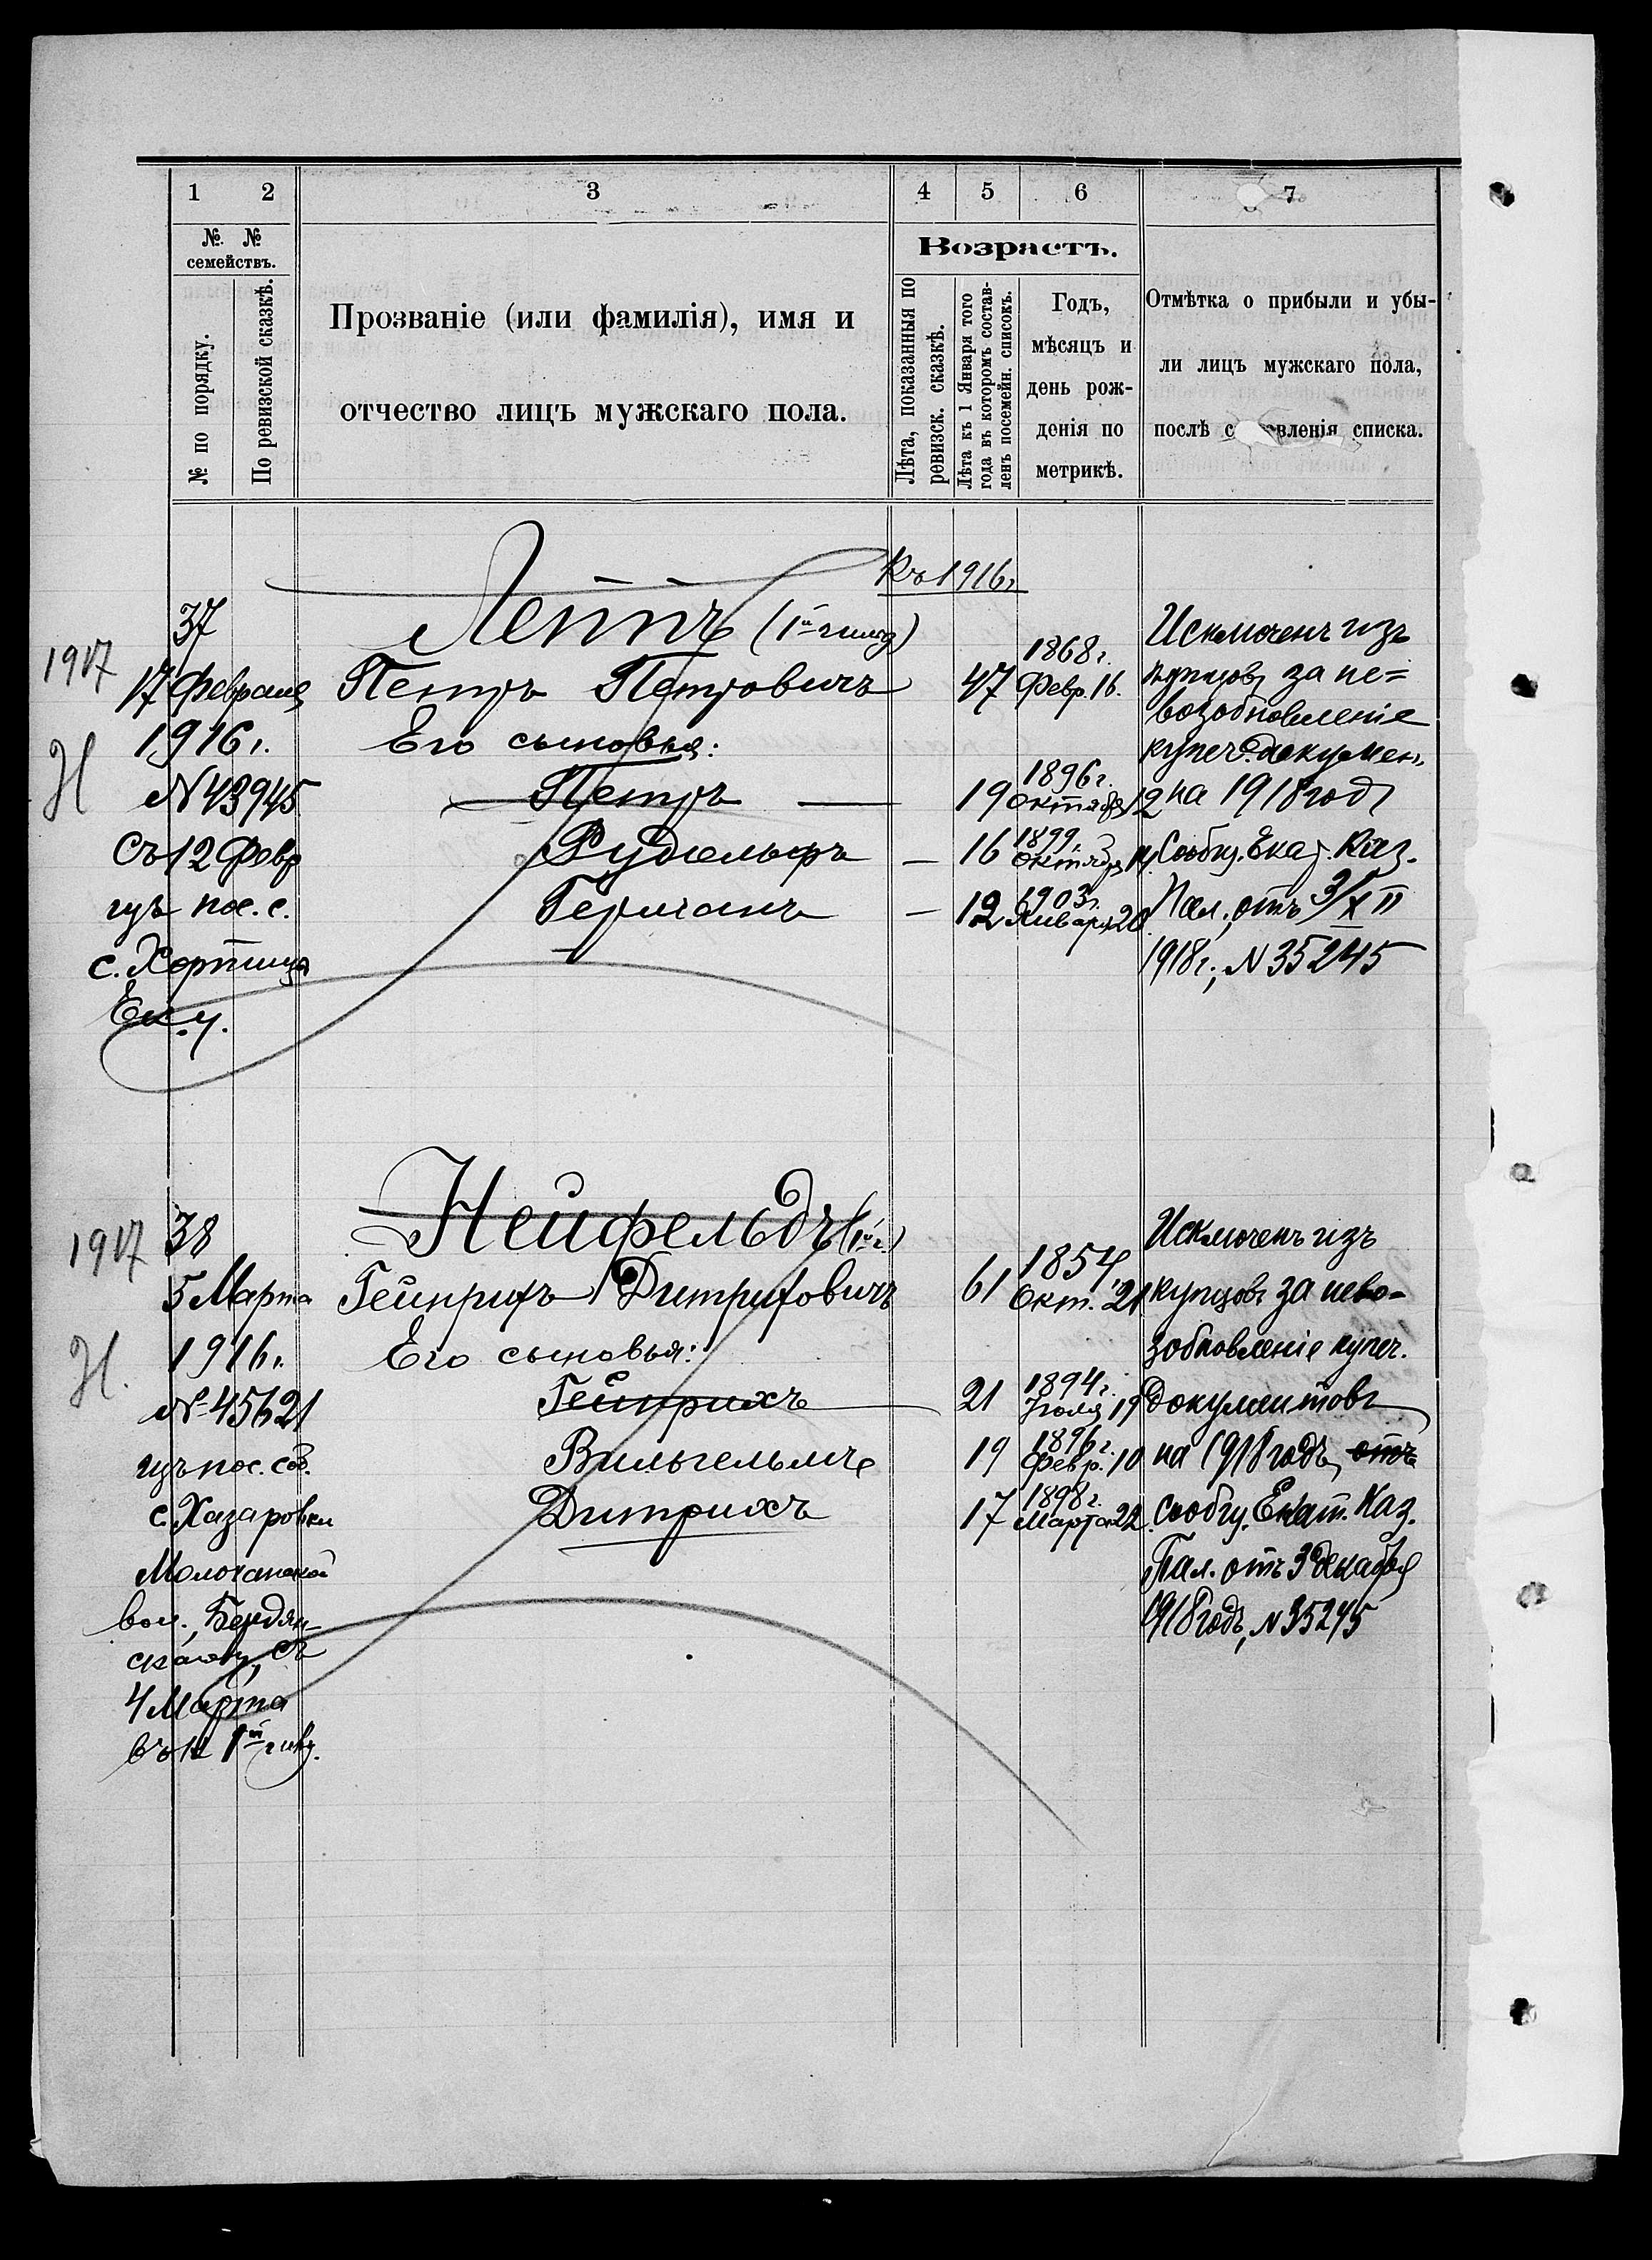 1 2 3 4 5 6 7
№ № семействъ.
№ по порядку.
По ревизской сказкѣ.
Прозваніе (или фамилія), имя и
отчество лицъ мужскаго пола.
Возрастъ.
Лѣта, показанныя по
ревизск. сказкѣ.
Лѣта къ 1 Января того
года въ которомъ состав-
ленъ посемейн. списокъ.
Годъ,
мѣсяцъ и
день рож-
денія по
метрикѣ.
Отмѣтка о прибыли и убы-
ли лицъ мужскаго пола,
послѣ с вленія списка.
Къ 1916г.
1917
37
17 Февраля
1916г.
Н
№ 43945
Съ 12 Февр
изъ пос. с.
с. Хортица
Ек. у.
Леппъ (1й гильд)
Петръ Петровичъ 47 1868г. Февр. 16.
Его сыновья:
Петръ — 19 1896г. Октября 12
Рудольфъ — 16 1899. Октября 14
Германъ — 12 1903г. Января 20
Исключенъ изъ
купцовъ за не=
возобновленіе
купеч. докумен.
на 1918 годъ
Сообщ. Екат. Каз.
Пал., отъ 3/XII
1918г., № 35245
1917
38
5 Марта
1916г.
Н.
№ 45621
изъ пос. соб.
с. Хазаровки
Молочанской
вол., Бердян-
скаго у, съ
4 Марта
въ 1й гильд.
Нейфельдъ (1й г.)
Гейнрихъ Дитриховичъ 61 1854, Окт. 21
Его сыновья:
Гейнрихъ 21 1894г. Іюля 19
Вильгельмъ 19 1896г. Февр. 10
Дитрихъ 17 1898г. Марта 22.
Исключенъ изъ
купцовъ за нево-
зобновленіе купеч.
документовъ
на 1918 годъ, отъ
сообщ. Екат. Каз.
Пал. отъ 3 декабря
1918 годъ, № 35245